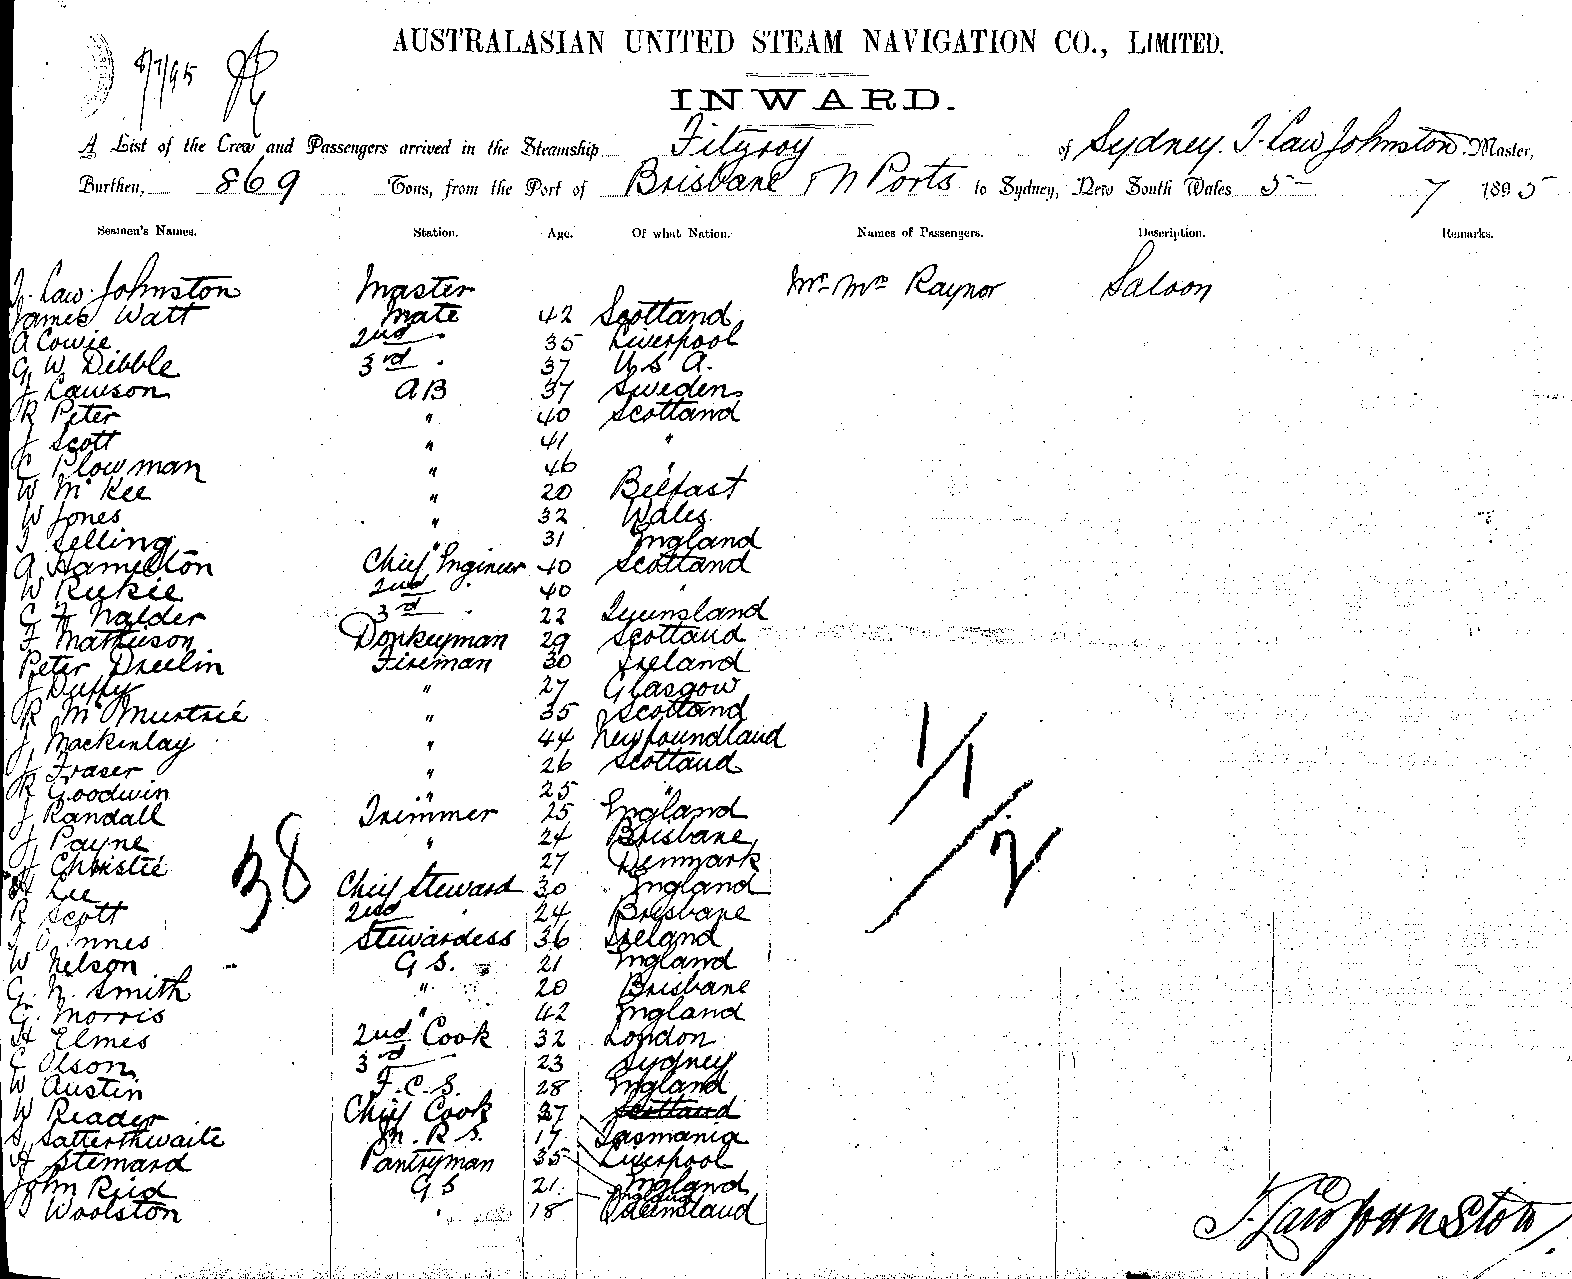 8/7/95
AUSTRALASIAN UNITED STEAM NAVIGATION CO., LIMITED.
INWARD.
A List of the Crew and Passengers arrived in the Steamship Fitzroy of Sydney. T. Law Johnston Master,
Burthen, 869 Tons, from the Port of Brisbane & N Ports to Sydney, New South Wales 5 - 7 1895
Seamen's Names. Station. Age. Of what Nation. Names of Passengers. Description. Remarks.
T. Law Johnston Master Mr. Mrs Raynor Saloon
James Watt Mate 42 Scotland
A Cowie 2nd 35 Liverpool
G W Dibble 3rd 37 U S A.
J Lawson AB 37 Sweden
R Peter " 40 Scotland
J Scott " 41 "
C Plowman " 46 "
W McKee " 20 Belfast
W Jones " 32 Wales
J Selling " 31 England
A Hamilton Chief Engineer 40 Scotland
W Rickie 2nd " 40 "
C F Nalder 3rd " 22 Queensland
F Mathieson Donkeyman 29 Scotland
Peter Dreelin Fireman 30 Ireland
J Duffy " 27 Glasgow
R McMurtrie " 35 Scotland
J Mackinlay " 44 Newfoundland
J Fraser " 26 Scotland
R Goodwin " 25 "
J Randall Trimmer 25 England
J Payne " 24 Brisbane
J Christie 27 Denmark
H Lee Chief Steward 30 England
R Scott 2nd " 24 Brisbane
Innes Stewardess 36 Ireland
W Nelson G S. 21 England
G. N. Smith " 20 Brisbane
G. Morris " 42 England
H Elmes 2nd Cook 32 London
C Olson 3rd 23 Sydney
W Austin F.C.S. 28 England
W Reader Chief Cook 27 Scotland
S Satterthwaite M. R S. 17 Tasmania
H Stemard Pantryman 35 Liverpool
John Reid G S 21 England
England
J Woolston " 18 Queensland
38
1/1/2
T. Law Johnston